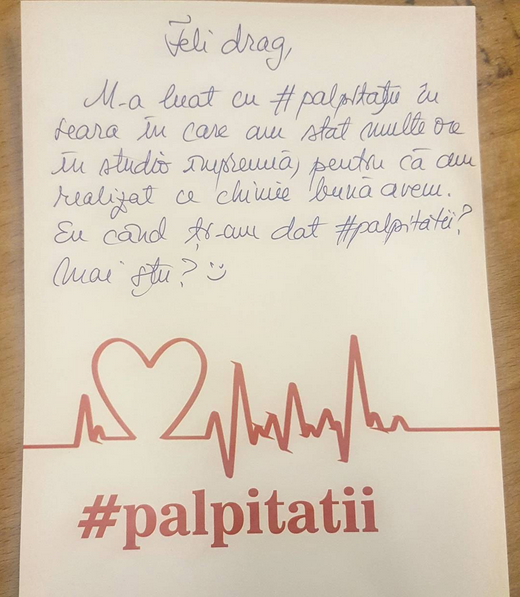 Feli drag,
M-a luat cu #palpitații în
seara în care am stat multe ore
în studio împreună, pentru că am
realizat ce chimie bună avem.
Eu când ți-am dat #palpitații?
Mai știi? :)
#palpitatii